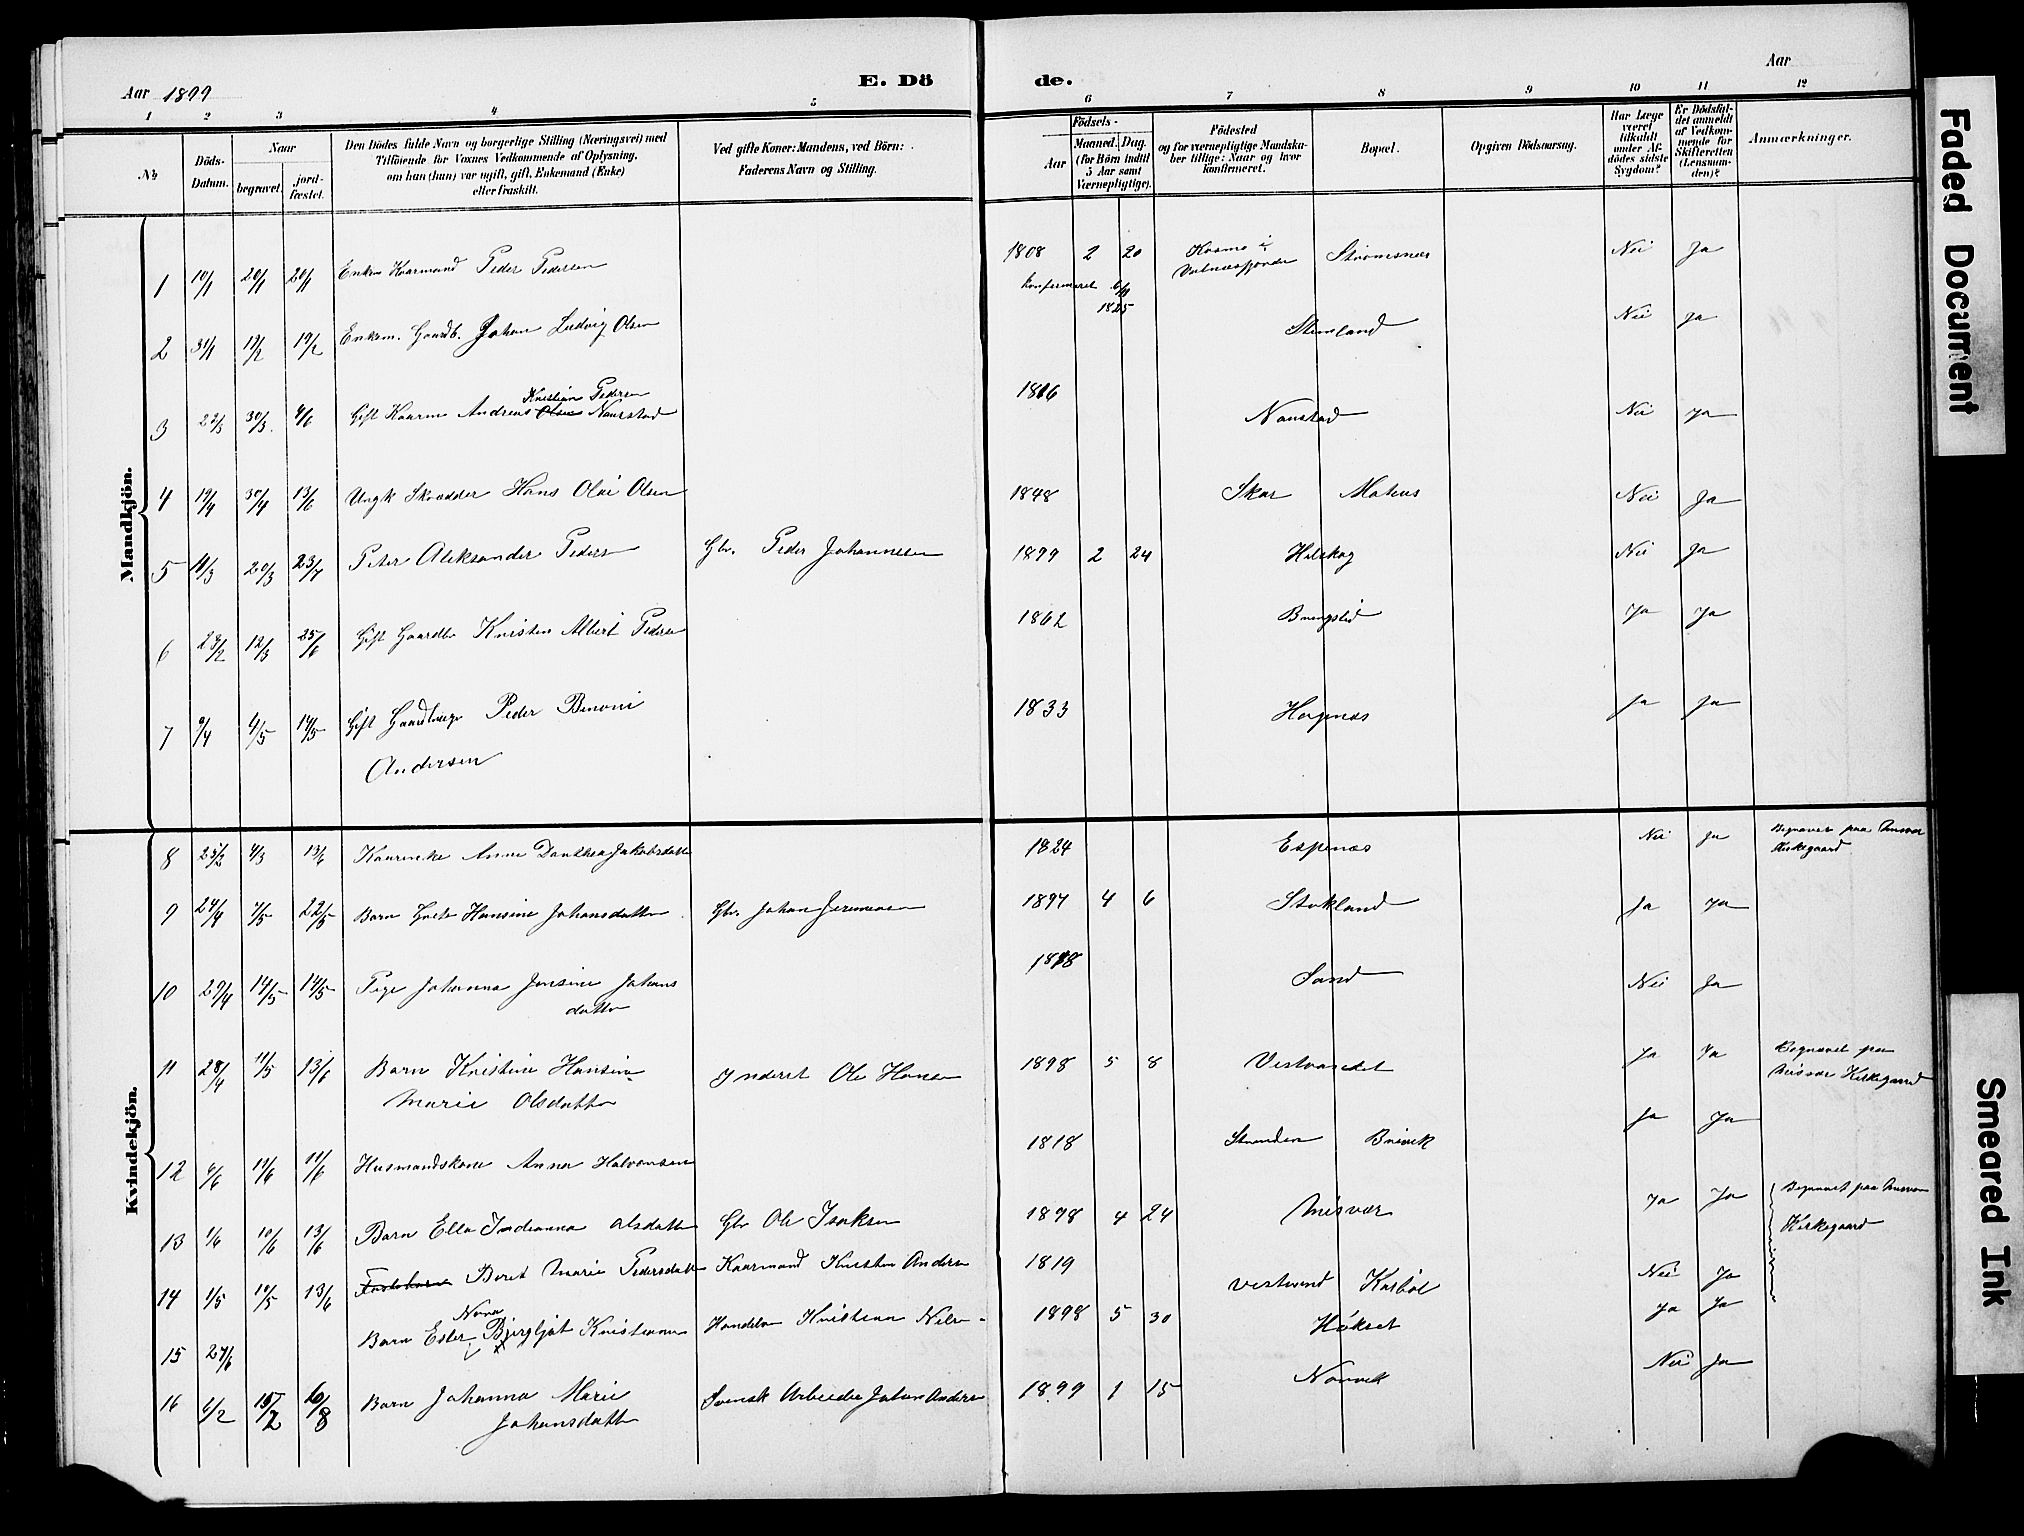 Aar 1899
E. Dö
de.
Aar
1 2 3 4 5 6 7 8 9 10 11 12
No
Döds-Datum.
Naar
begravet.
jord-fæstet.
Den Dödes fulde Navn og borgerlige Stilling (Næringsvei) med
Tilföiende for Voxnes Vedkommende af Oplysning,
om han (hun) var ugift, gift, Enkemand (Enke)
eller fraskilt.
Ved gifte Koner: Mandens, ved Börn:
Faderens Navn og Stilling.
Födsels-
Aar
Maaned. Dag.
(for Börn indtil
5 Aar samt
Værnepligtige).
Födested
og for værnepligtige Mandska-
ber tillige: Naar og hvor
konfirmeret.
Bopæl.
Opgiven Dödsaarsag.
Har Læge
været
tilkaldt
under Af-
dödes sidste
Sygdom?
Er Dödsfal-
det anmeldt
af Vedkom-
mende for
Skifteretten
(Lensman-
den)?
Anmærkninger.
Mandkjön.
1 10/1 20/1 20/1 Enkem Kaarmand Peder Pedersen 1808 2 20 Kosmo i Strømsnes Nei Ja
Valnesfjorden
konfirmeret 6/11
1825
2 31/1 19/2 19/2 Enkem. Gaardb. Johan Ludvig Olsen Stemland Nei Ja
Kristian Pedersen
3 22/3 30/3. 4/6 Gift Kaarm Andreas Olsen Naustad 1816 Naustad Nei Ja
4 19/4 30/4 13/6 Ungk Skrædder Hans Olai Olsen 1848 Skar Nei Ja
5 11/3 20/3 23/7 Peter Aleksander Peders Gbr. Peder Johannesen 1899 2 24 Hilskog Nei Ja
6 23/2 12/3 25/6 Gift Gaardbr Kristen Albert Pederse 1862 Bringsli Ja Ja
7 9/4 4/5 14/5 Gift Gaardbruger Peder Benoni 1833 Hagenæs Ja Ja
Andersen
Kvindekjön.
8 25/2 4/3 13/6 Kaarenke Anne Dorthea Jakobsdatter 1824 Espenæs Nei Ja Begravet paa Misvær
Kirkegaard
9 24/4 7/5 22/5 Barn Hansine Johansdatter Gbr. Johan Jeremiasen 1897 4 6 Stokland Ja Ja
10 29/4 14/5 14/5 Pige Johanna Jensine Johans Sand Nei Ja
datter
11 28/4 11/5 13/6 Barn Kristine Hansine Inderst Ole Hansen 1898 5 8 Vestvandet Ja Ja Begravet paa
Marie Olsdatter Misvær Kirkegaard
12 6/6 11/6 11/6 Husmandskone Anna Halvorsen 1818 Stranden Breivik Ja Ja
13 1/6 10/6 13/6 Barn Ella Indianna Olsdatter Gbr Ole Isaksen 1898 4 24 Misvær Ja Ja Begravet paa Misvær
Kirkegaard
14 1/5 10/5 13/6 Fosterbarn Beret Marie Pedersdatter Kaarmand Kristen Anders 1819 Vestvand Karbøl Nei Ja
Nora
15 27/6 Barn Ester Bjergljot Kristianne Handelsm Kristian Nilsen 1898 5 30 Høkset Ja Ja
16 6/2 15/2 6/8 Barn Johanna Marie Svensk Arbeider Johan Anders 1899 1 15 Narvik Nei Ja
Johansdatter
Faded Document
Smeared Ink